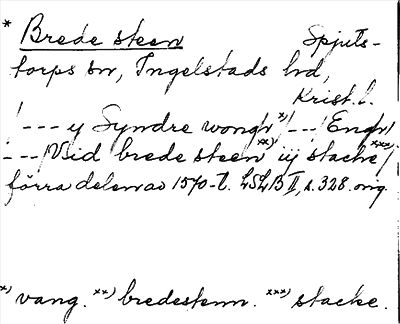 * Brede steen Spjuts-
torps sn, Ingelstads hd,
Krist. l.
/ --- y Syndre wongh x) / --- / Engh /
--- / Vid brede steen xx) iij stacke xxx) /
förra delen av 1570-t. LSLB II, s. 328. orig.
x) vang. xx) bredestenn. xxx) stacke.